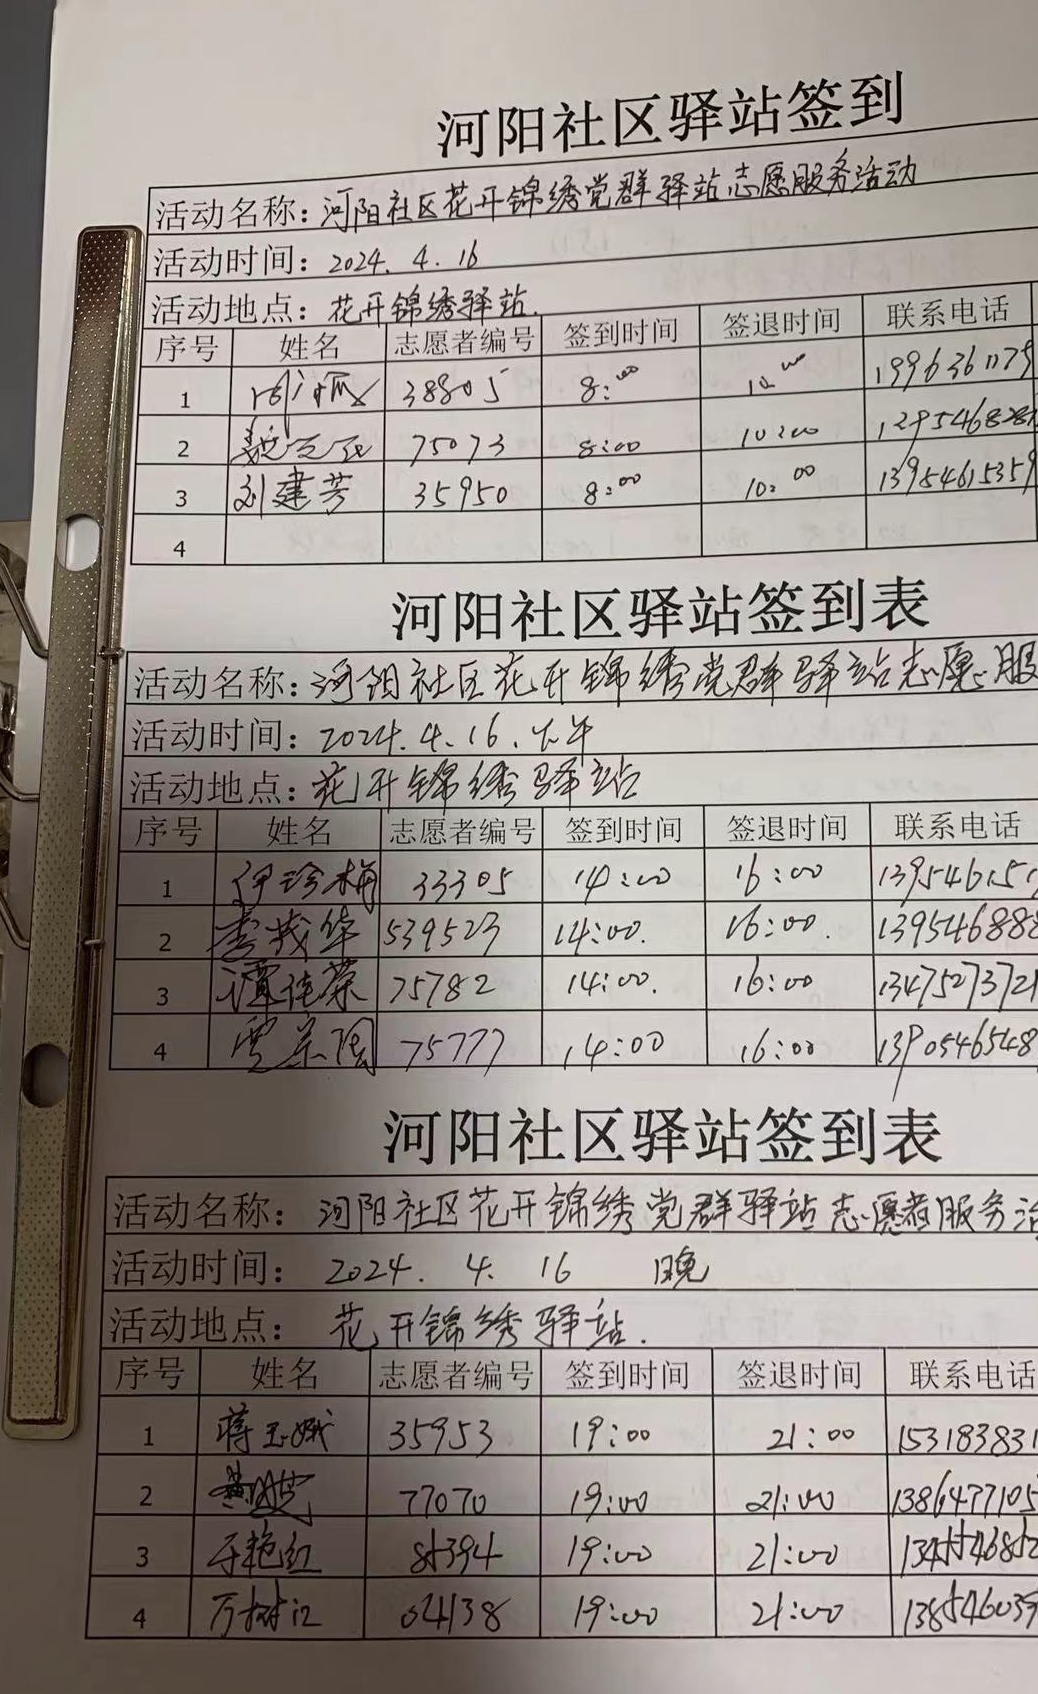 河阳社区驿站签到
活动名称：河阳社区花开锦绣党群驿站志愿服务活动
活动时间：2024.4.16
活动地点：花开锦绣驿站.
序号 姓名 志愿者编号 签到时间 签退时间 联系电话
1 38805 8:00 10:00
2 75073 8:00 10:00
3 刘建芳 35950 8:00 10:00 13954615359
4
河阳社区驿站签到表
活动名称：河阳社区花开锦绣党群驿站志愿服
活动时间：2024.4.16.下午
活动地点：花开锦绣驿站
序号 姓名 志愿者编号 签到时间 签退时间 联系电话
1 伊珍梅 33305 14:00 16:00 139546151
2 李成华 539523 14:00. 16:00. 139546888
3 谭佳荣 75782 14:00. 16:00 13475273721
4 75777 14:00 16:00 1390546548
河阳社区驿站签到表
活动名称：河阳社区花开锦绣党群驿站志愿者服务活
活动时间：2024. 4. 16 晚
活动地点：花开锦绣驿站.
序号 姓名 志愿者编号 签到时间 签退时间 联系电话
1 蒋玉娥 35953 19:00 21:00 153183831
2 77070 19:00 21:00 1386477105
3 于艳红 85394 19:00 21:00
4 万树江 04138 19:00 21:00 138546039